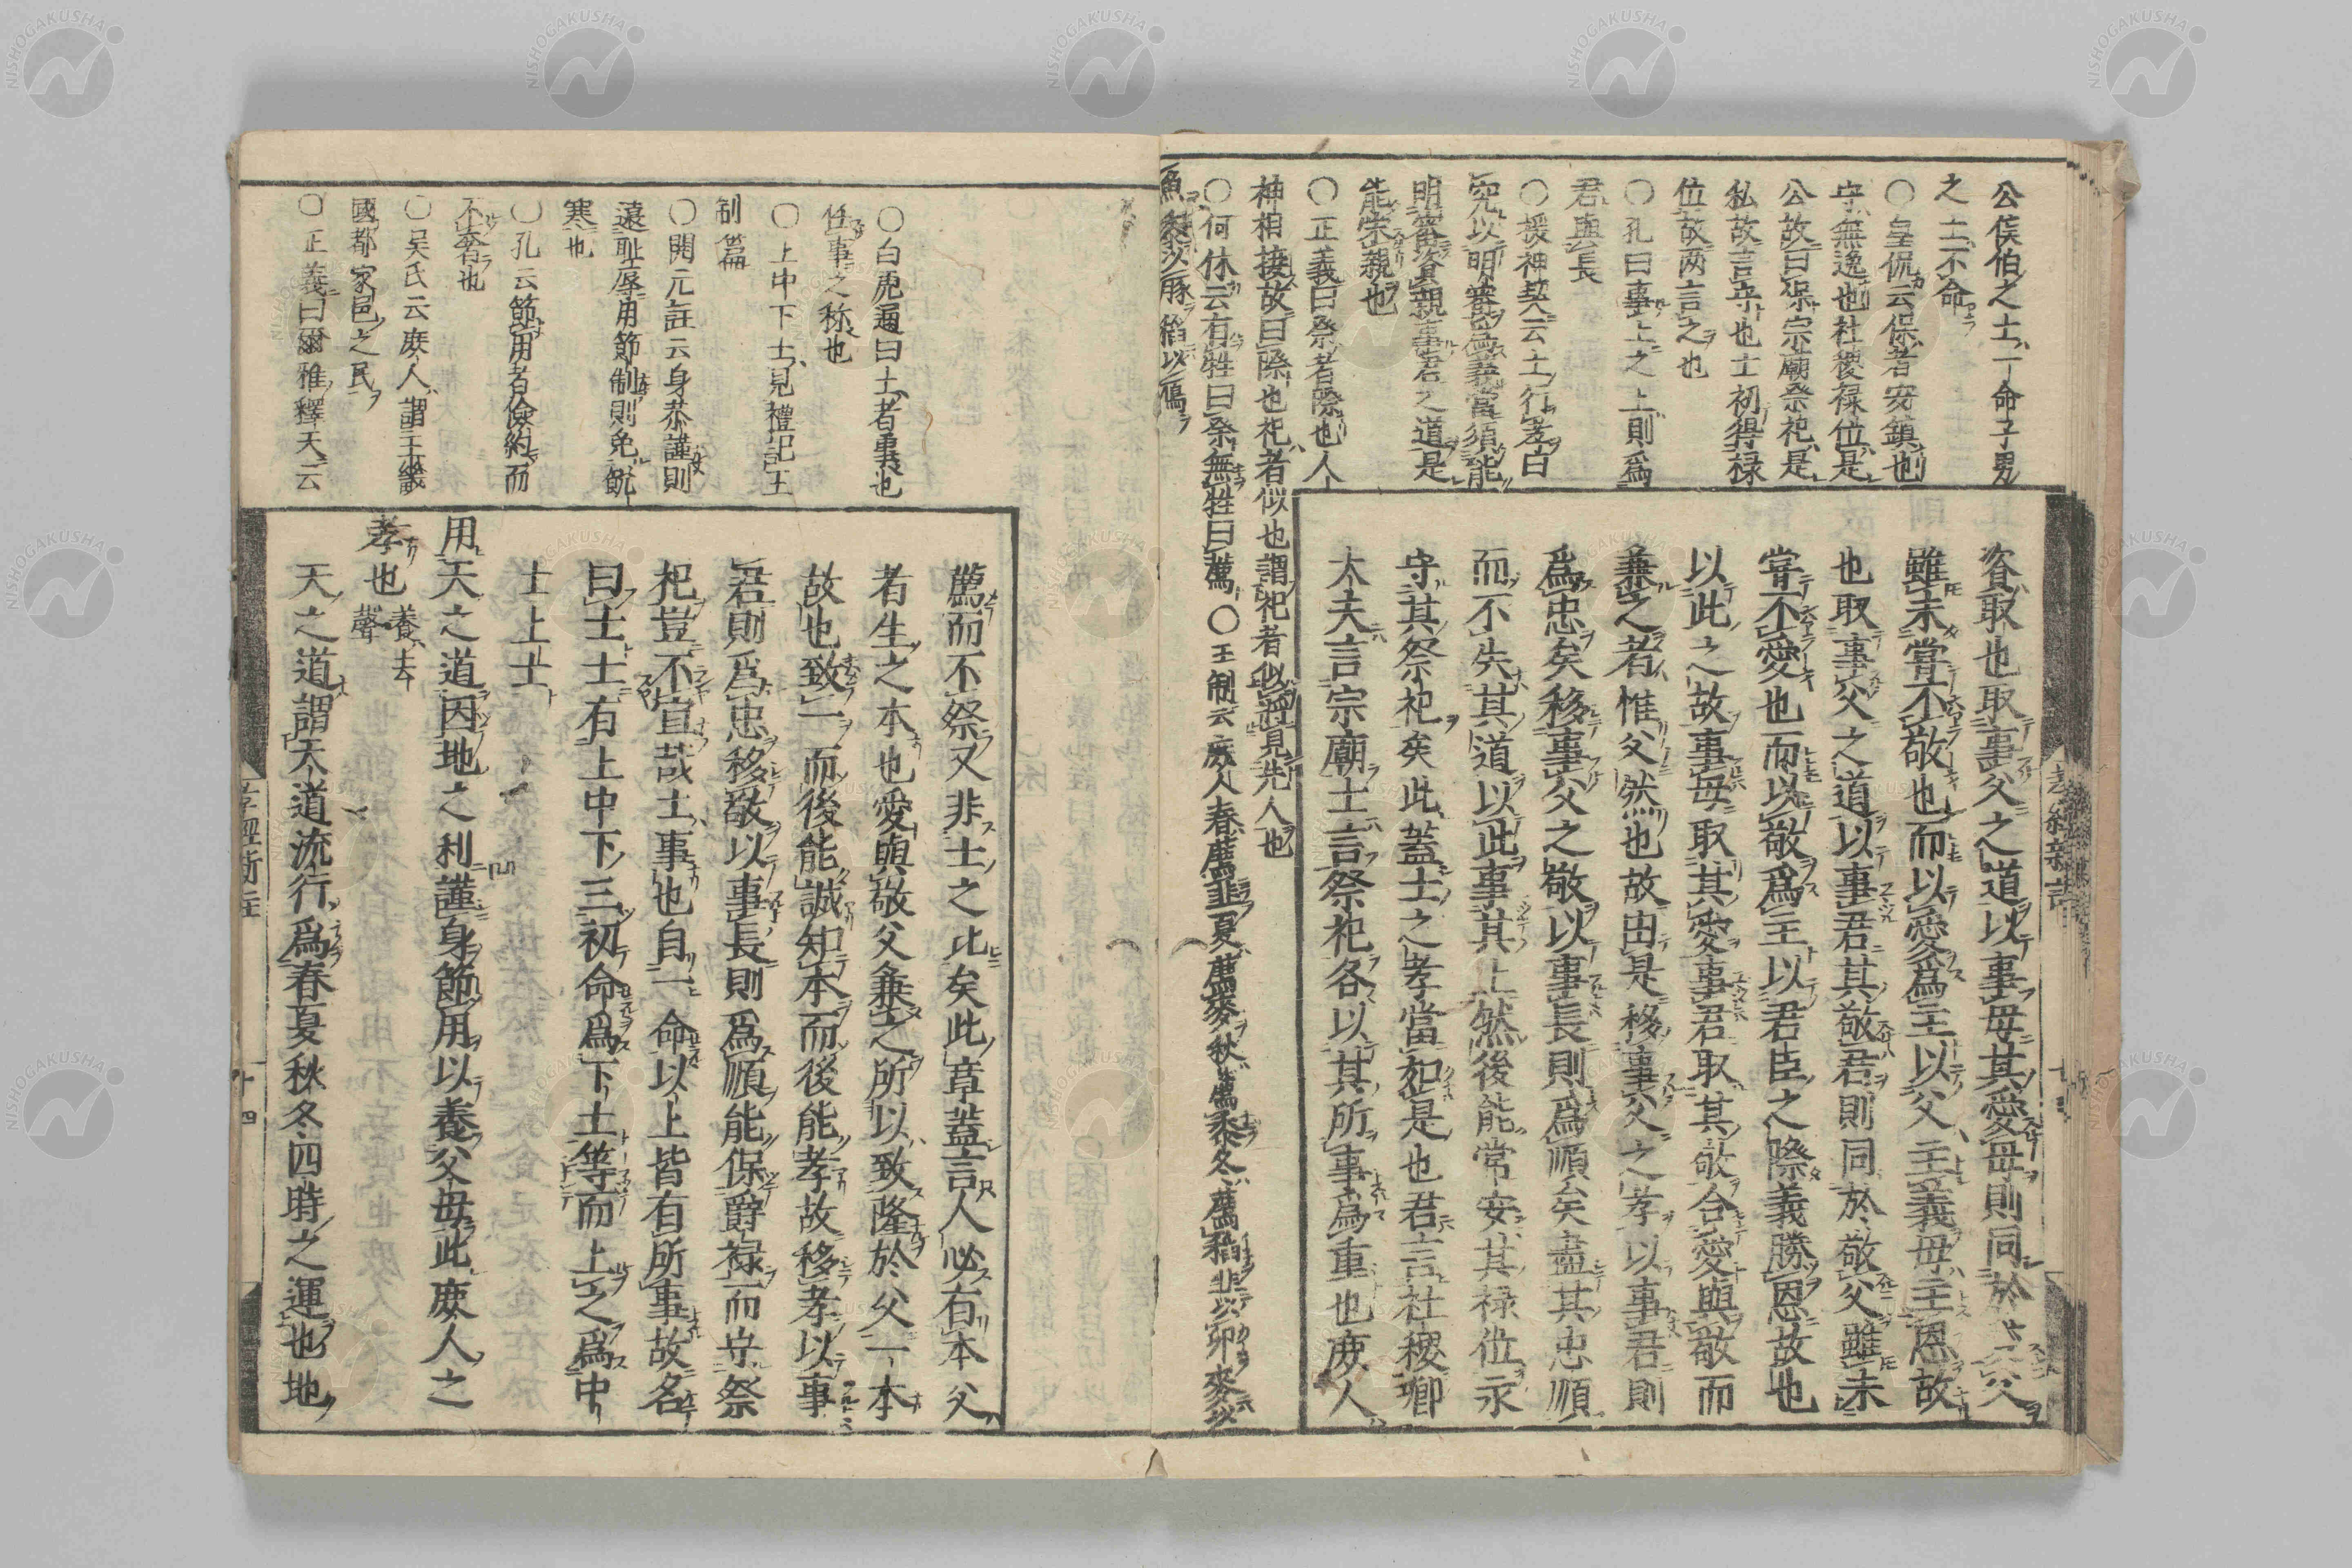 公侯伯之士一命子男
之士不命
○皇侃云保者安鎮也
守無逸也社稷禄位是
公故曰保宗廟祭祀是
私故言守也士初得禄
位故两言之也
○孔曰事上之上則爲
君與長
○援神契云士行孝曰
究以明審爲義當須能
明審資親事君之道是
能榮親也
○正義曰祭者際也人
神相接故曰際也祀者似也謂祀者似將見先人也
○何休云有牲曰祭無牲曰薦○王制云庶人春薦韭夏薦麥秋薦黍冬薦稻韭以卵麥以
魚黍以豚稻以鴈
資取也取事父之道以事母其愛母則同於父
雖未嘗不敬也而以愛爲主以父主義母主恩故
也取事父之道以事君其敬君則同於敬父雖未
嘗不愛也而以敬爲主以君臣之際義勝恩故也
以此之故事母取其愛事君取其敬合愛與敬而
兼之者惟父然也故由是移事父之孝以事君則
爲忠矣移事父之敬以事長則爲順矣盡其忠順
而不失其道以此事其上然後能常安其禄位永
守其祭祀矣此蓋士之孝當如是也君言社稷卿
大夫言宗廟士言祭祀各以其所事爲重也庶人
孝經新註
○白虎通曰士者事也
任事之称也
○上中下士見禮記王
制篇
○開元註云身恭謹則
遠耻辱用節制則免飢
寒也
○孔云節用者儉約而
不奢也
○吴氏云庶人謂王畿
國都家邑之民
○正義曰爾雅釋天云
薦而不祭又非士之比矣此章蓋言人必有本父
者生之本也愛與敬父兼之所以致隆於父一本
故也致一而後能誠知本而後能孝故移孝以事
君則爲忠移敬以事長則爲順能保爵禄而守祭
祀豈不宜哉士事也自一命以上皆有所事故名
曰士士有上中下三初命爲下士等而上之爲中
士上士
用天之道因地之利謹身節用以養父母此庶人之
孝也養去聲
天之道謂天道流行爲春夏秋冬四時之運也地
孝經新註
十四
NISHOGAKUSHA